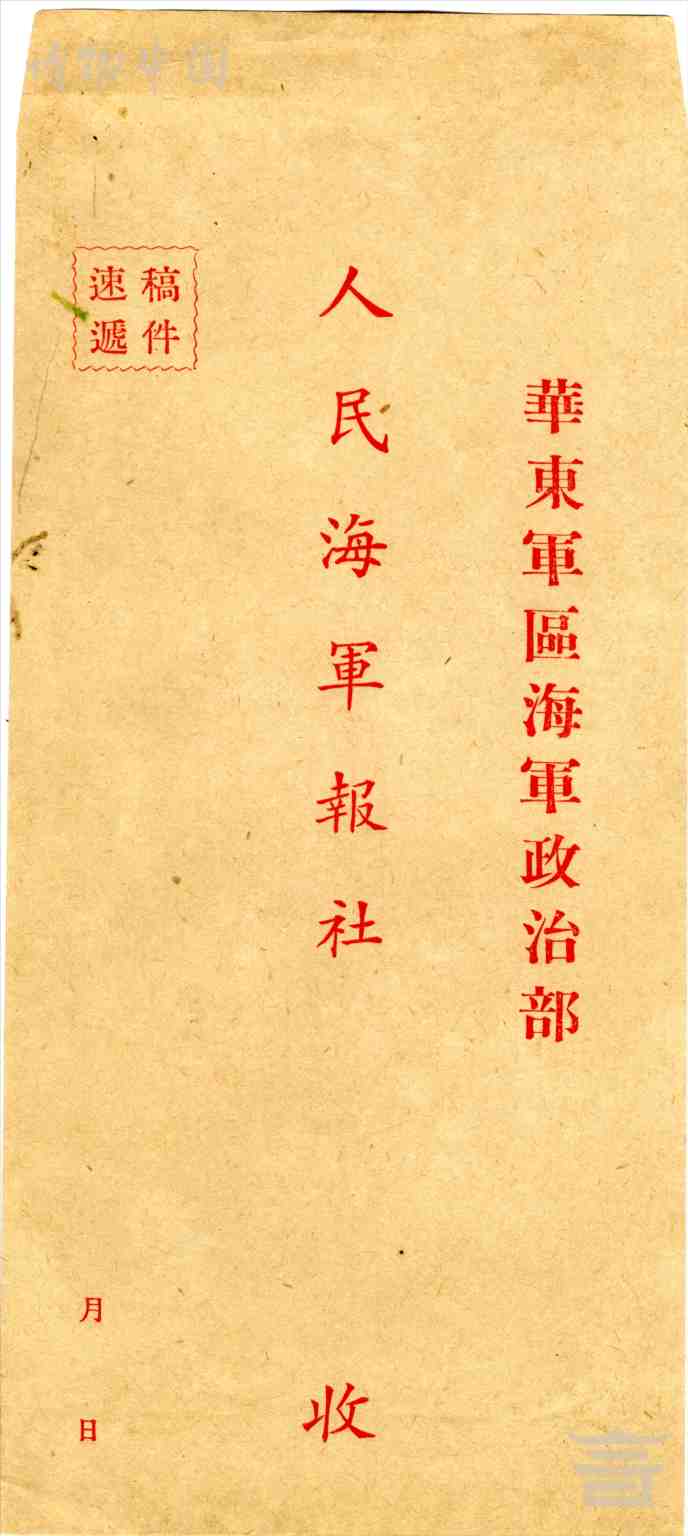 華東軍區海軍政治部
人民海軍報社
收
稿件
速遞
月
日